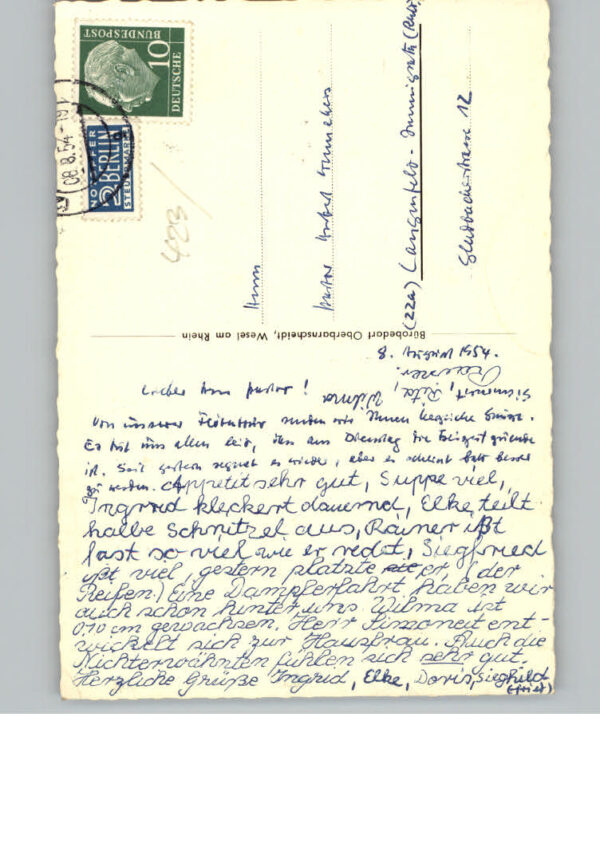 10
DEUTSCHE
BUNDESPOST
08.8.54
NOTOPFER
2 BERLIN
STEUERMARKE
423
Herrn
Pastor
(22a) Langenfeld - Immigrath (Rhld
Gladbacherstrasse 12
Bürobedarf Oberbarnscheidt, Wesel am Rhein
8. August 1954.
Lieber Herr Pastor!
Siegmunt, Rita, Wilma
Von unserer senden wir Ihnen herzliche Grüsse.
Es tut uns allen leid, am Dienstag die
ist. Seit gestern regnet es wieder, aber es scheint bald besser
zu werden. Appetit sehr gut, Suppe viel,
Ingrid kleckert dauernd, Elke teilt
halbe Schnitzel aus, Rainer ißt
fast so viel wie er redet, Siegfried
ißt viel, gestern platzte er, (der
Reifen) Eine Dampferfahrt haben wir
auch schon hinter uns. Wilma ist
0,10 cm gewachsen. Herr Simoneit ent-
wickelt sich zur Hausfrau. Auch die
Nichterwähnten fühlen sich sehr gut.
Herzliche Grüße Ingrid, Elke, Doris, Sieghild
(fried)